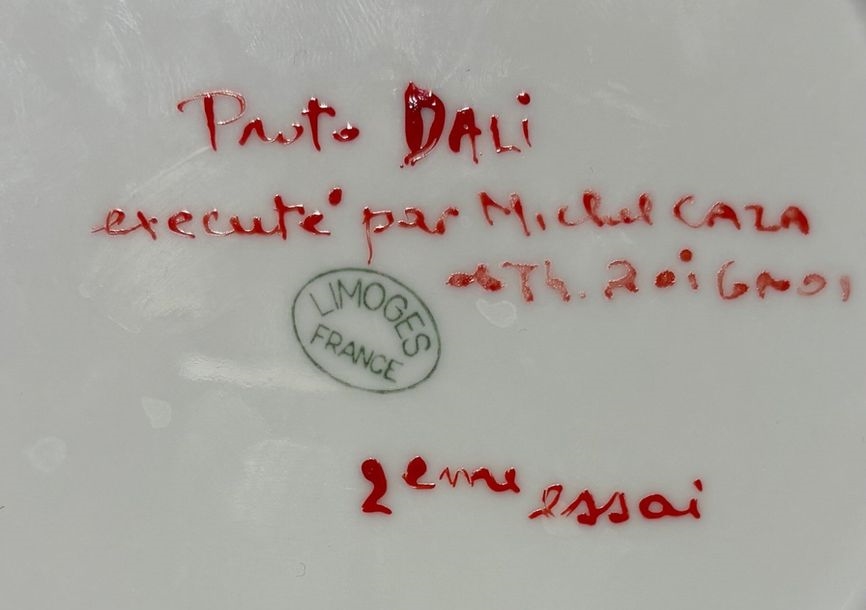 Proto DALi
executé par Michel CAZA
et Th.
LIMOGES
FRANCE
2eme essai